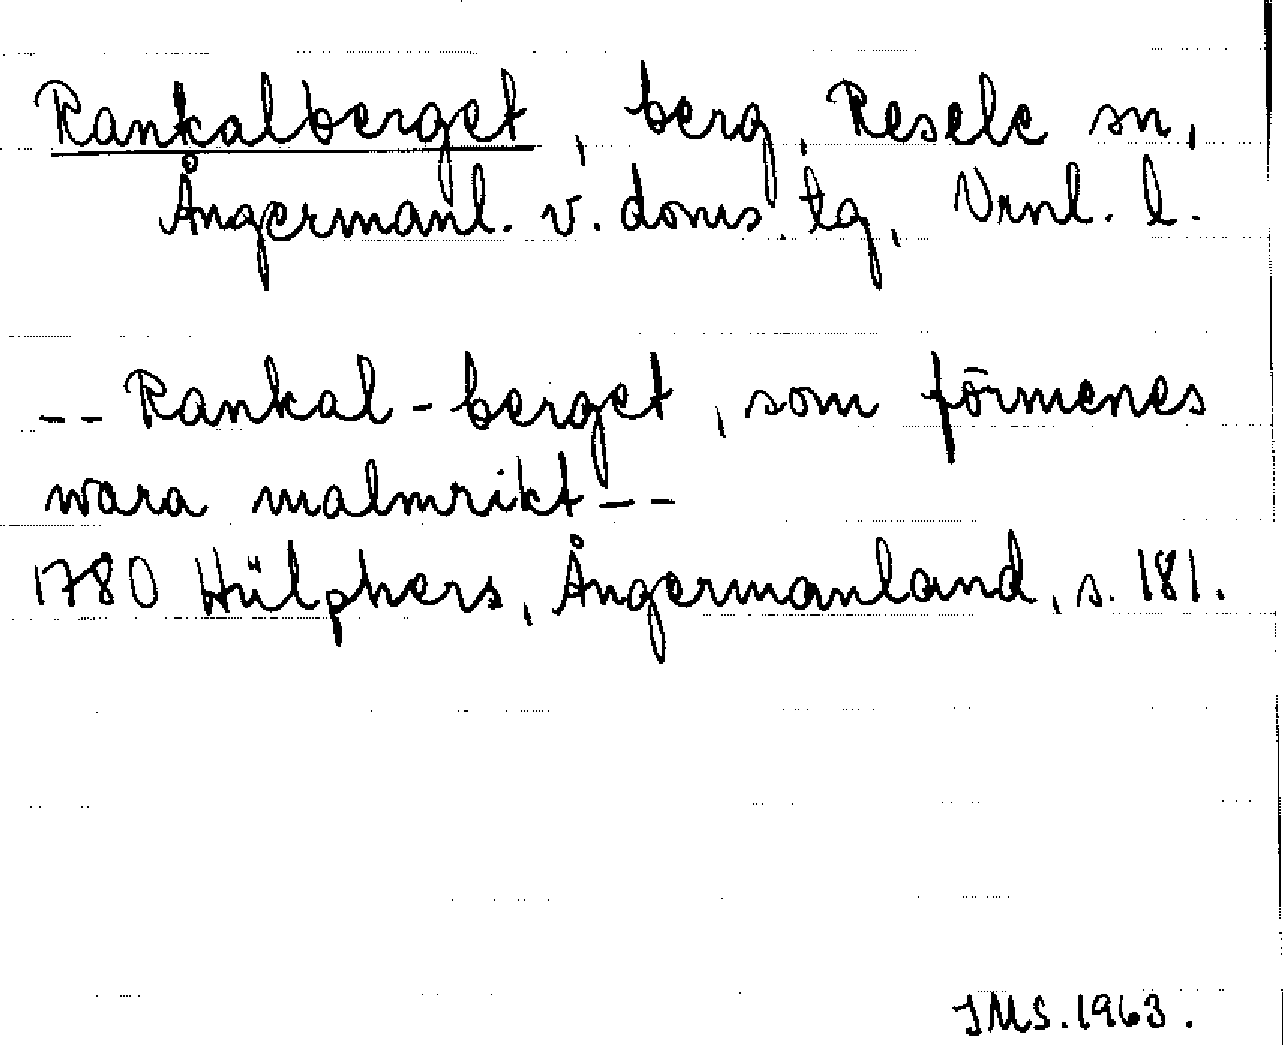 Rankalberget, berg, Resele sn,
Ångermanl. v. doms. tg, Vrnl. l.
-- Rankal-berget, som förmenes
wara malmrikt --
1780 Hülphers, Ångermanland, s. 181.
IMS. 1963.